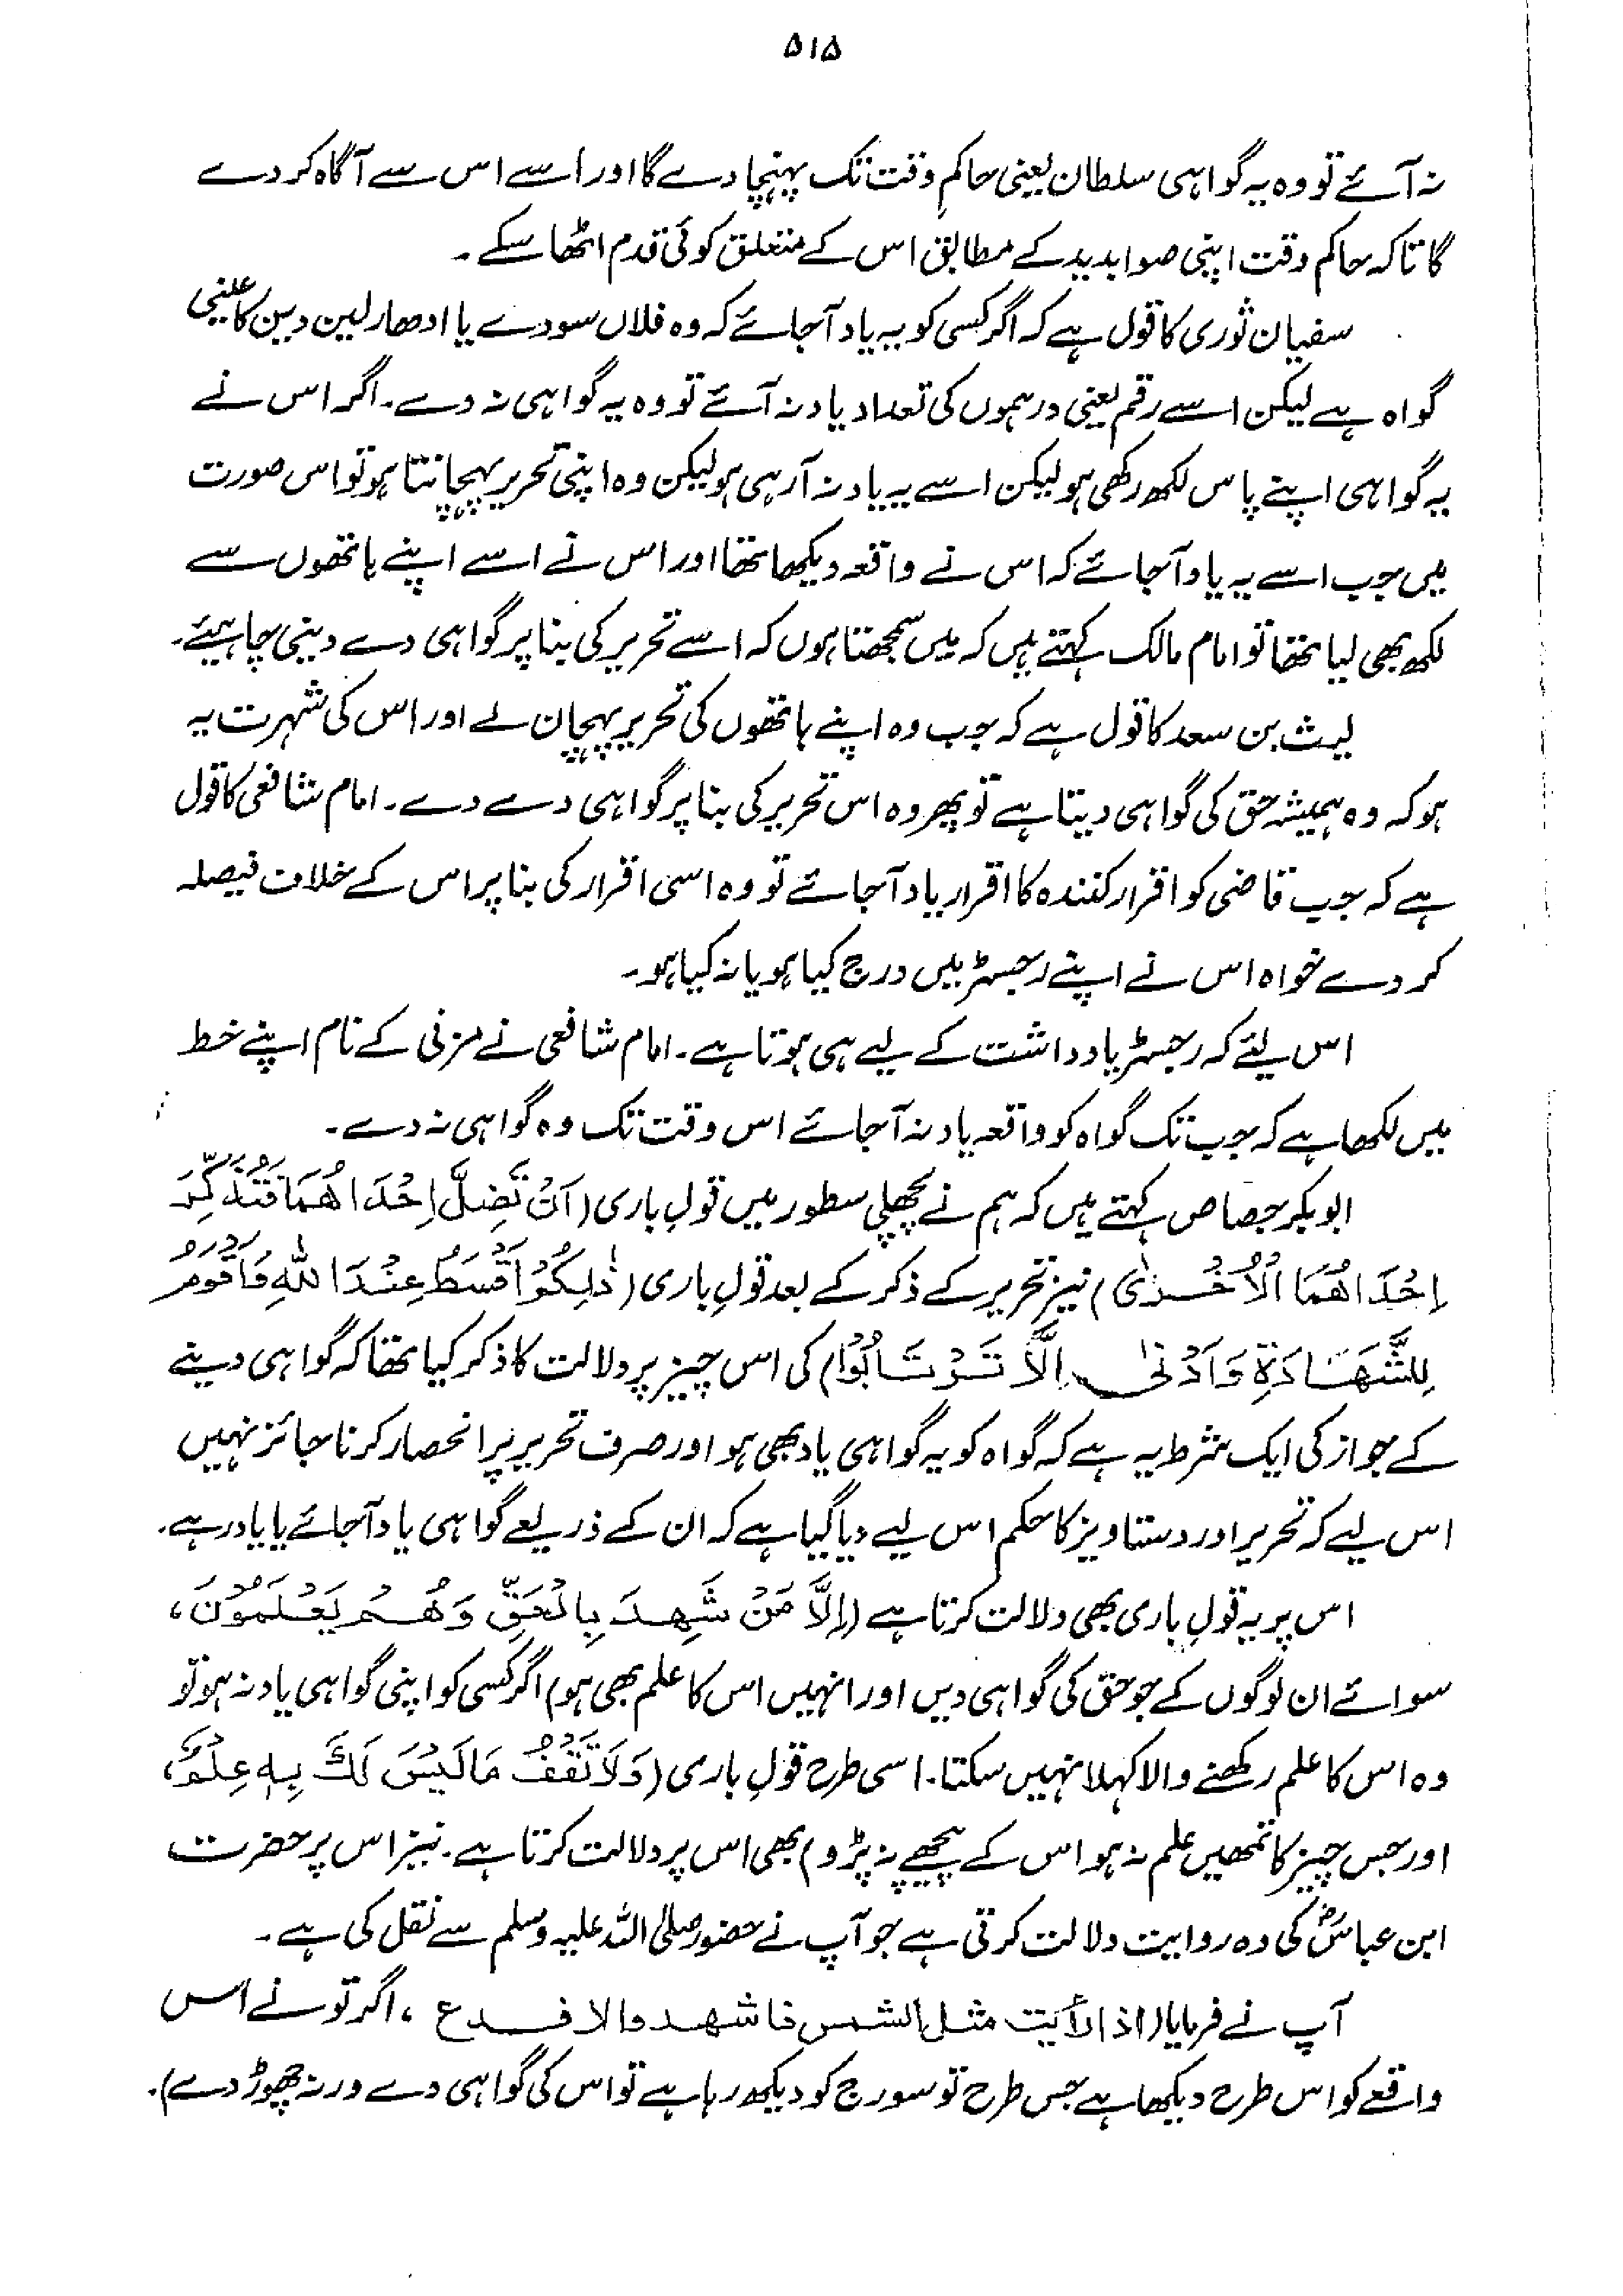 ۵۱۵
نہ آئے تو وہ یہ گواہی سلطان یعنی حاکمِ وقت تک پہنچا دے گا اور اسے اس سے آگاہ کر دے
گا تاکہ حاکم وقت اپنی صوابدید کے مطابق اس کے متعلق کوئی قدم اٹھا سکے۔
سفیان ثوری کا قول ہے کہ اگر کسی کو یہ یاد آجائے کہ وہ فلاں سودے یا ادھار لین دین کا عینی
گواہ ہے لیکن اسے رقم یعنی درہموں کی تعداد یاد نہ آئے تو وہ یہ گواہی نہ دے۔ اگر اس نے
یہ گواہی اپنے پاس لکھ رکھی ہو لیکن اسے یہ یاد نہ آرہی ہو لیکن وہ اپنی تحریر پہچانتا ہو تو اس صورت
میں جب اسے یہ یاد آجائے کہ اس نے واقعہ دیکھا تھا اور اس نے اسے اپنے ہاتھوں سے
لکھ بھی لیا تھا تو امام مالک کہتے ہیں کہ میں سمجھتا ہوں کہ اسے تحریر کی بنا پر گواہی دے دینی چاہیئے۔
لیث بن سعد کا قول ہے کہ جب وہ اپنے ہاتھوں کی تحریر پہچان لے اور اس کی شہرت یہ
ہو کہ وہ ہمیشہ حق کی گواہی دیتا ہے تو پھر وہ اس تحریر کی بنا پر گواہی دے دے۔ امام شافعی کا قول
ہے کہ جب قاضی کو اقرار کنندہ کا اقرار یاد آجائے تو وہ اسی اقرار کی بنا پر اس کے خلاف فیصلہ
کر دے خواہ اس نے اپنے رجسٹر میں درج کیا ہو یا نہ کیا ہو۔
اس لئے کہ رجسٹر یادداشت کے لیے ہی ہوتا ہے۔ امام شافعی نے مزنی کے نام اپنے خط
میں لکھا ہے کہ جب تک گواہ کو واقعہ یاد نہ آجائے اس وقت تک وہ گواہی نہ دے۔
ابوبکر جصاص کہتے ہیں کہ ہم نے پچھلی سطور میں قولِ باری (اَنْ تَضِلَّ اِحْدَاھُمَا فَتُذَکِّرَ
اِحْدَاھُمَا الْاُخْرٰی) نیز تحریر کے ذکر کے بعد قولِ باری (ذٰلِکُمْ اَقْسَطُ عِنْدَ اللّٰہِ وَاَقْوَمُ
لِلشَّھَادَۃِ وَاَدْنٰی اِلَّا تَرْتَابُوْا) کی اس چیز پر دلالت کا ذکر کیا تھا کہ گواہی دینے
کے جواز کی ایک شرط یہ ہے کہ گواہ کو یہ گواہی یاد بھی ہو اور صرف تحریر پر انحصار کرنا جائز نہیں
اس لیے کہ تحریر اور دستاویز کا حکم اس لیے دیا گیا ہے کہ ان کے ذریعے گواہی یاد آجائے یا یاد رہے۔
اس پر یہ قولِ باری بھی دلالت کرتا ہے (اِلَّا مَنْ شَھِدَ بِالْحَقِّ وَھُمْ یَعْلَمُوْنَ،
سوائے ان لوگوں کے جو حق کی گواہی دیں اور انہیں اس کا علم بھی ہو) اگر کسی کو اپنی گواہی یاد نہ ہو تو
وہ اس کا علم رکھنے والا کہلا نہیں سکتا۔ اسی طرح قولِ باری (وَلَا تَقْفُ مَا لَیْسَ لَکَ بِہٖ عِلْمٌ،
اور جس چیز کا تمھیں علم نہ ہو اس کے پیچھے نہ پڑو) بھی اس پر دلالت کرتا ہے۔ نیز اس پر حضرت
ابن عباسؓ کی وہ روایت دلالت کرتی ہے جو آپ نے حضور صلی اللہ علیہ وسلم سے نقل کی ہے۔
آپ نے فرمایا (اذا رأیت مثل الشمس فاشھد والا فدع، اگر تو نے اس
واقعے کو اس طرح دیکھا ہے جس طرح تو سورج کو دیکھ رہا ہے تو اس کی گواہی دے ورنہ چھوڑ دے)۔